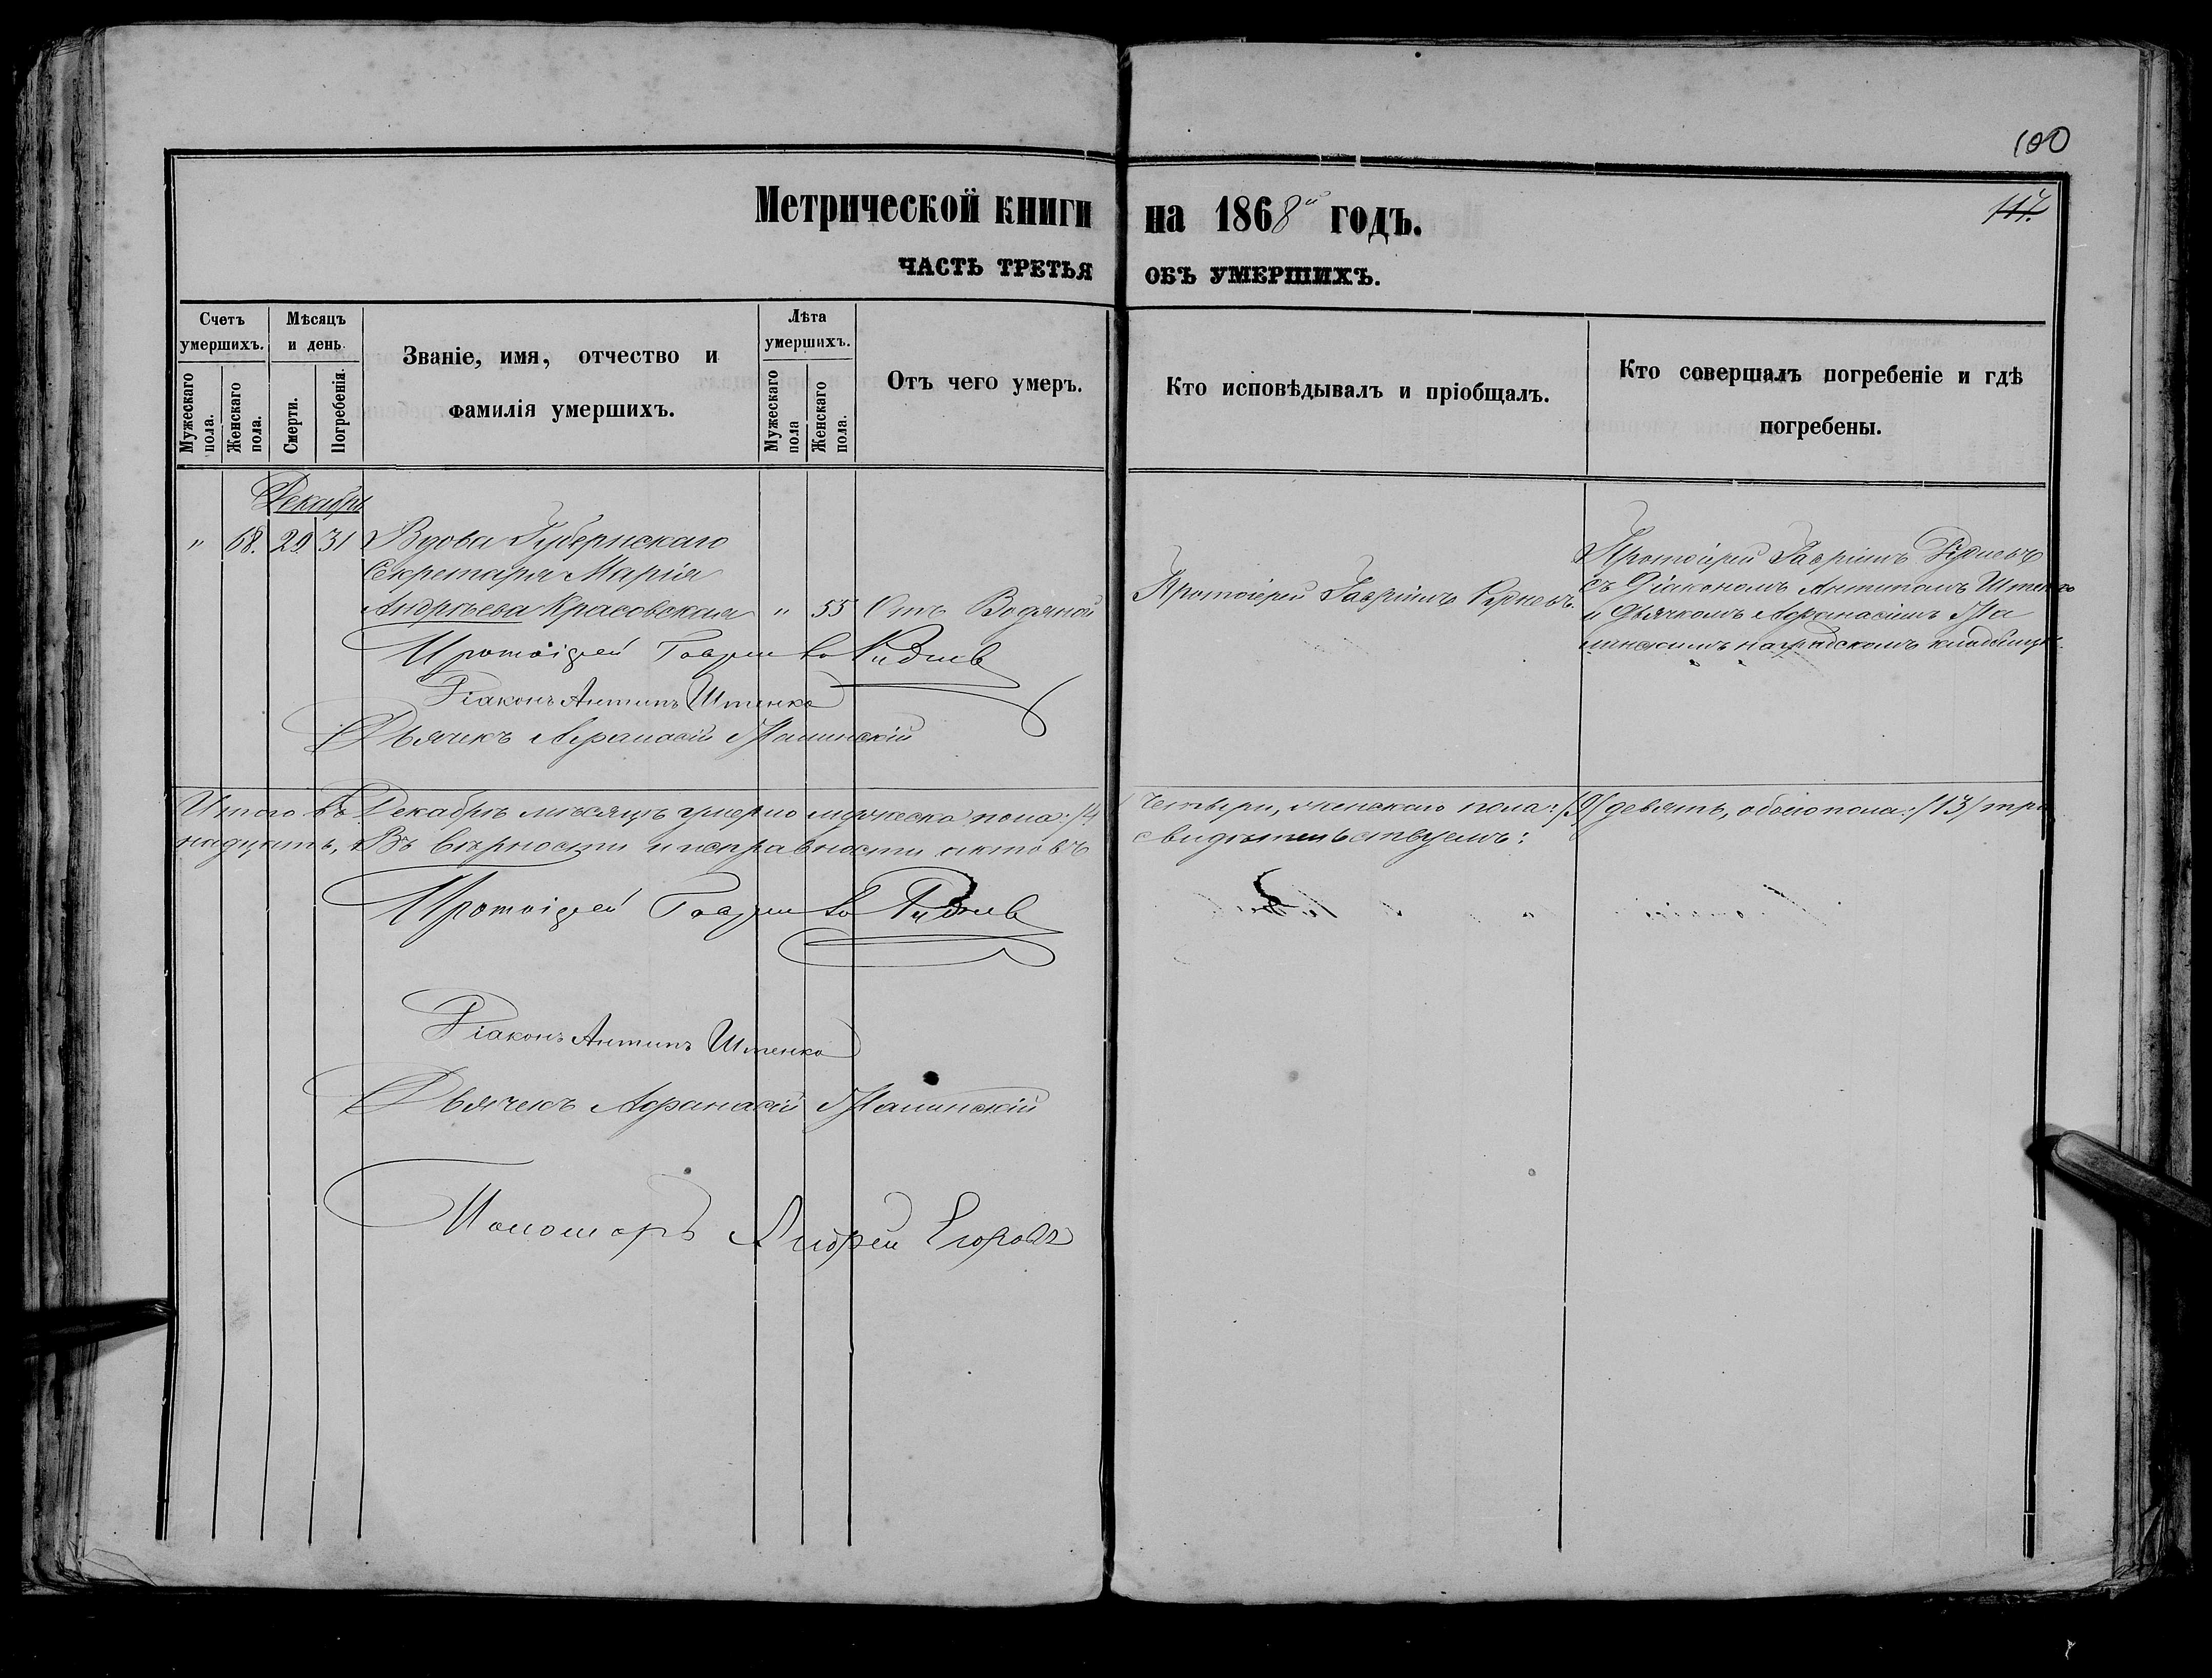 100
117.
Метрической книги на 1868й годъ.
ЧАСТЬ ТРЕТЬЯ ОБЪ УМЕРШИХЪ.
Счетъ умершихъ.
Мужескаго пола.
Женскаго пола.
Мѣсяцъ и день
Смерти.
Погребенія.
Званіе, имя, отчество и
фамилія умершихъ.
Лѣта умершихъ.
Мужескаго пола
Женскаго пола.
Отъ чего умеръ.
Кто исповѣдывалъ и пріобщалъ.
Кто совершалъ погребеніе и гдѣ
погребены.
Декабрь
" 68. 29. 31 Вдова Губернскаго
Секретаря Марія
Андрѣева Красовская " 55 Отъ Водяной
Протоіерей Гавріилъ Рудневъ.
Протоіерей Гавріилъ Рудневъ
съ Діакономъ Антипомъ Штенко
и Дьячкомъ Афанасіемъ
на градскомъ кладбищѣ.
Протоіерей Гавріилъ Рудневъ
Діаконъ Антипъ Штенко
Дьячекъ Афанасій
Итого въ Декабрѣ мѣсяцѣ умерло мужеска пола: /4/ четыри, женскаго пола: /9/ девять, обоего пола: /13/ три
надцать, Въ вѣрности и исправности актовъ свидѣтельствуемъ:
Протоіерей Гавріилъ Рудневъ
Діаконъ Антипъ Штенко
Дьячекъ Афанасій
Пономарь Андрей Егоровъ